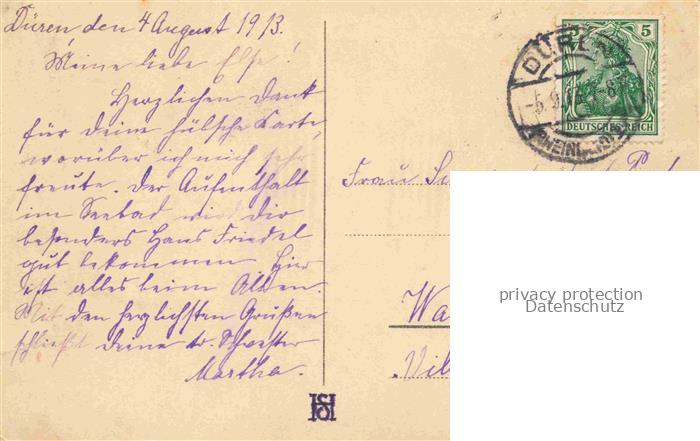 Düren den 4 August 1913.
Meine liebe Else!
Herzlichen Dank
für deine hübsche Karte,
worüber ich mich sehr
freute. Der Aufenthalt
im Seebad wird dir
besonders Hans Friedel
gut bekommen Hier
ist alles beim Alten.
Mit den herzlichsten Grüßen
schließt deine tr. Schwester
Martha.
5
DÜREN
DEUTSCHES REICH
Frau
privacy protection
Datenschutz